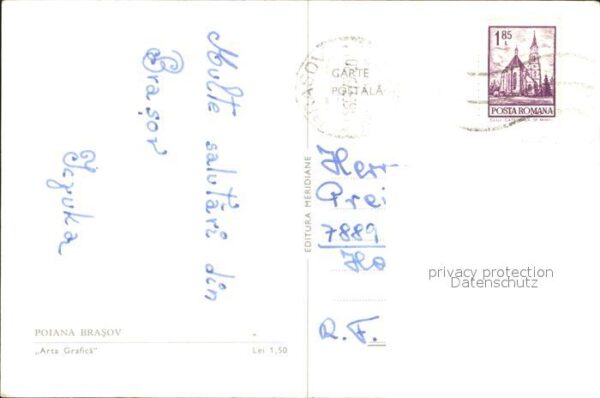 Multe salutări din
Brașov
CARTE
POȘTALĂ
1,85
L
POSTA ROMANA
EDITURA MERIDIANE
7889
R.F.
privacy protection
Datenschutz
POIANA BRAȘOV
„Arta Grafică”
Lei 1,50